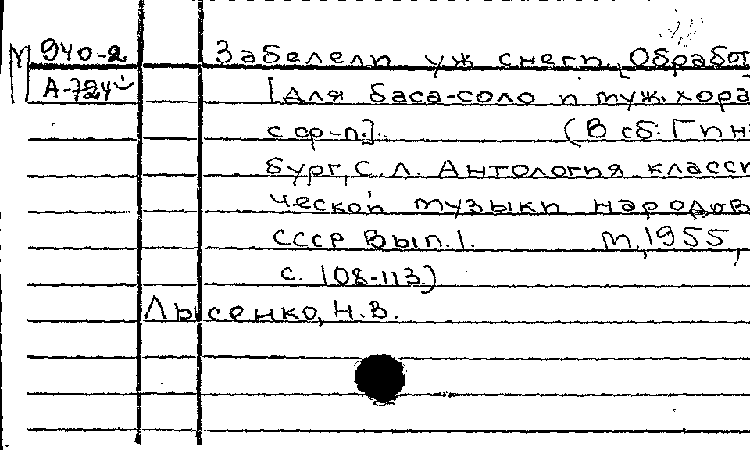 М 940-2 Забелели уж снеги. Обработ
А-724 [Для баса-соло и муж. хора
с ф-п.]. (В сб: Гинз
бург, С. Л. Антология класси
ческой музыки народов
СССР Вып. 1. М, 1955,
с. 108-113)
Лысенко, Н. В.